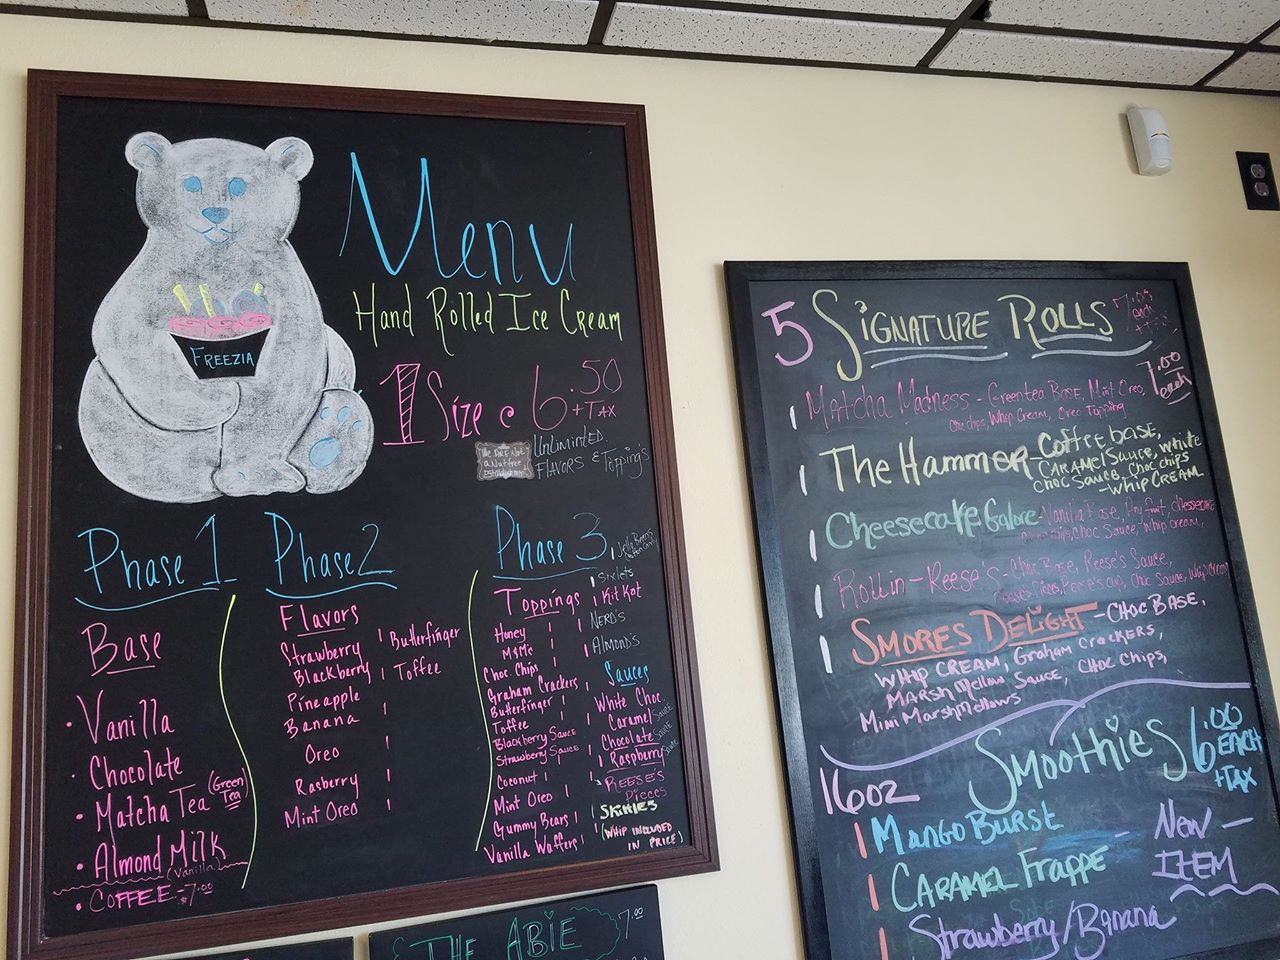 Menu
Hand Rolled Ice Cream
FREEZIA
1 Size @ 6.50
+ TAX
We ARE Not
a Nut free
UNLIMINTED
FLAVORS & Topping's
Phase 1
Base
• Vanilla
• Chocolate
• Matcha Tea (Green Tea)
• Almond Milk
(Vanilla)
• COFFEE - $7.00
Phase 2
Flavors
Strawberry
Blackberry
Pineapple
Banana
Oreo
Rasberry
Mint Oreo
Butterfinger
Toffee
Phase 3
Toppings
Honey
M&M's
Choc. Chips
Graham Crackers
Butterfinger
Toffee
Blackberry Sauce
Strawberry Sauce
Coconut
Mint Oreo
Gummy Bears
Vanilla Waffers
Jelly Beans
Cotton Candy
Sixlets
Kit Kat
NERD'S
ALMOND'S
Sauces
White Choc.
Caramel SAUCE
Chocolate SAUCE
Raspberry SAUCE
REESE'S
Pieces
SKITTLES
(WHIP INCLUDED
IN PRICE)
THE ABIE 7.00
5 SIGNATURE ROLLS
7.00
each
Matcha Madness - Greentea Base, Mint Oreo,
Choc chips, Whip Cream, Oreo Topping
The Hammer - Coffee base,
CARAMEL SAUCE, white
choc SAUCE, choc chips
- WHIP CREAM
Cheesecake Galore - Vanilla Base, Any fruit, cheesecake
chips, Choc Sauce, Whip cream,
Rollin - Reese's - Choc Base, Reese's Sauce,
Reese's Pieces, Reese's Cups, Choc Sauce, Whip Cream
SMORES DELIGHT - CHOC BASE,
WHIP CREAM, Graham Crackers,
Marshmellow Sauce, CHOC Chips,
Mini Marshmellows
16oz Smoothies 6.00
EACH
+ TAX
Mango Burst
CARAMEL Frappe
Strawberry/Banana
New -
ITEM